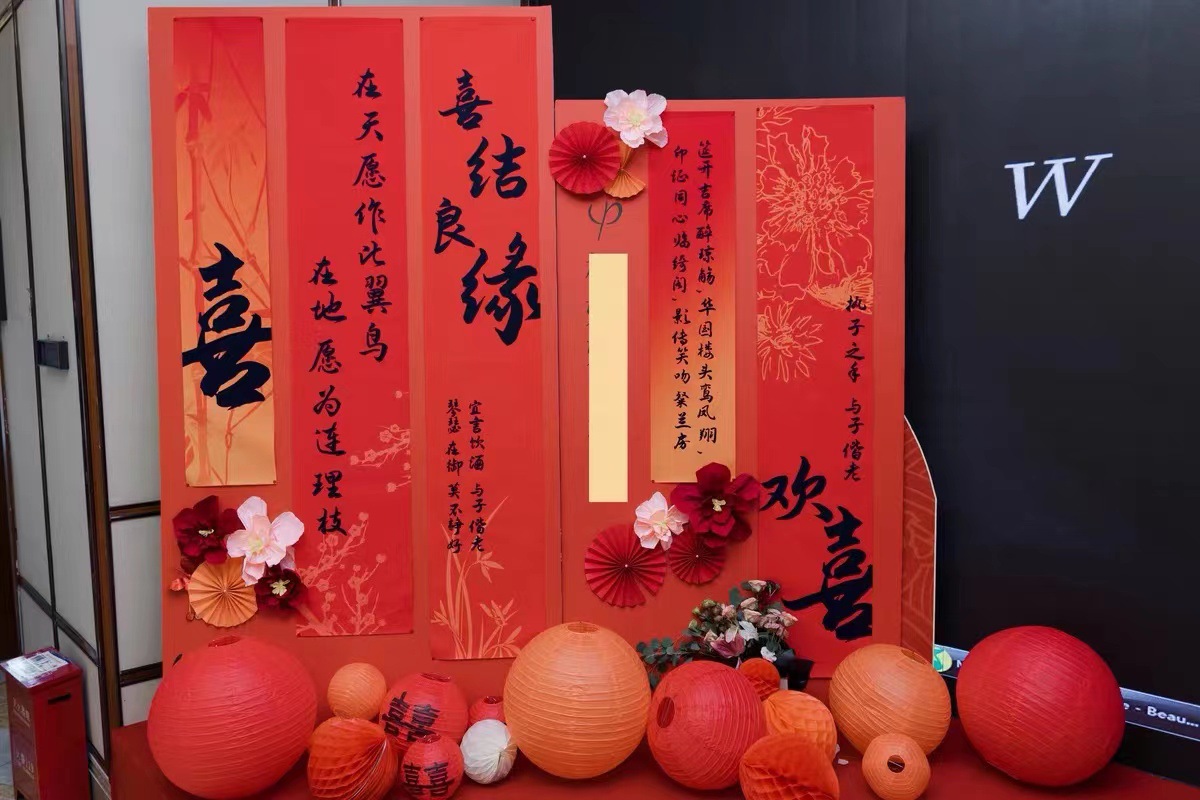 喜
在天愿作比翼鸟
在地愿为连理枝
喜结良缘
宜言饮酒 与子偕老
琴瑟在御 莫不静好
筵开吉席醉琼觞、华国楼头鸾凤翔、
印证同心临绮阁、影传笑吻粲兰房
执子之手 与子偕老
欢喜
囍
囍
W
e - Beau...